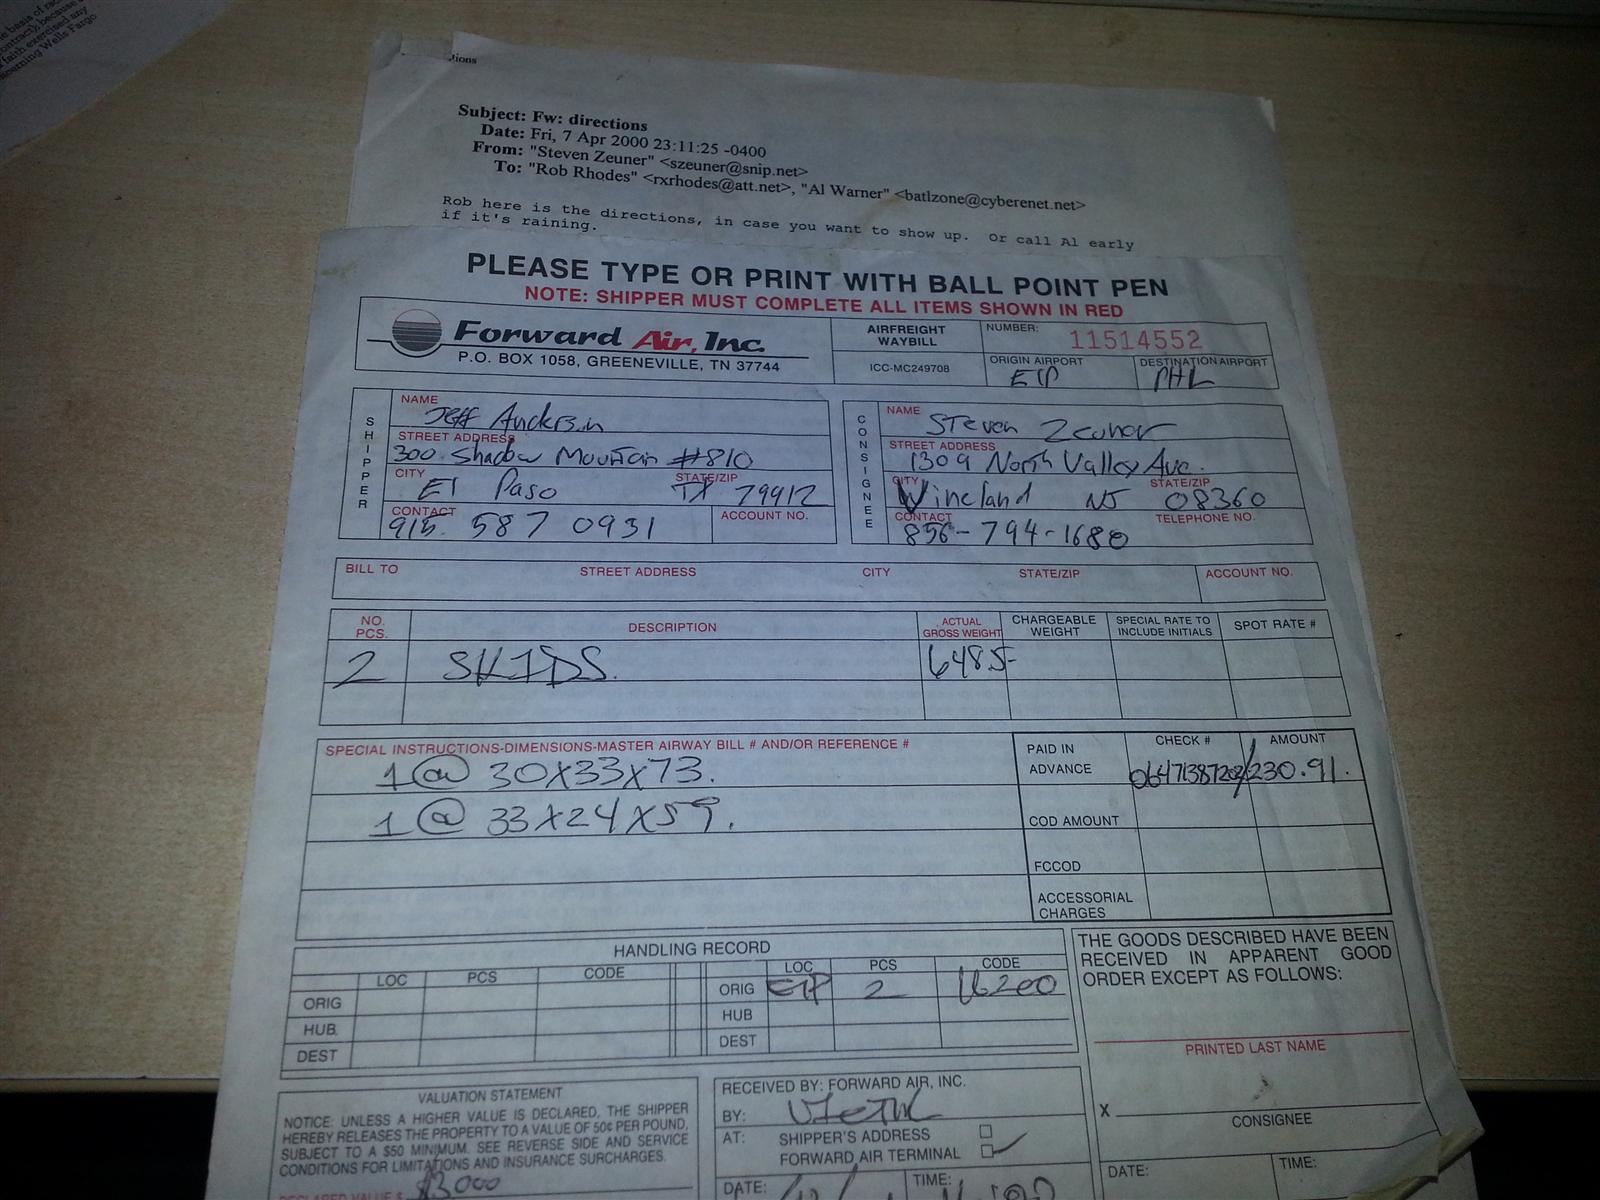 the basis of
contract), because
faith exercised any
concerning Wells Fargo
tions
Subject: Fw: directions
Date: Fri, 7 Apr 2000 23:11:25 -0400
From: "Steven Zeuner" <szeuner@snip.net>
To: "Rob Rhodes" <rxrhodes@att.net>, "Al Warner" <batlzone@cyberenet.net>
Rob here is the directions, in case you want to show up. Or call Al early
if it's raining.
PLEASE TYPE OR PRINT WITH BALL POINT PEN
NOTE: SHIPPER MUST COMPLETE ALL ITEMS SHOWN IN RED
Forward Air, Inc.
P.O. BOX 1058, GREENEVILLE, TN 37744
AIRFREIGHT WAYBILL
NUMBER: 11514552
ICC-MC249708
ORIGIN AIRPORT ELP
DESTINATION AIRPORT PHL
SHIPPER
NAME Jeff Anderson
STREET ADDRESS 300 Shadow Mountain #810
CITY El Paso STATE/ZIP TX 79912
CONTACT 915 587 0931 ACCOUNT NO.
CONSIGNEE
NAME Steven Zeuner
STREET ADDRESS 1309 North Valley Ave.
CITY Vineland NJ STATE/ZIP 08360
CONTACT 856-794-1680 TELEPHONE NO.
BILL TO STREET ADDRESS CITY STATE/ZIP ACCOUNT NO.
NO. PCS. DESCRIPTION ACTUAL GROSS WEIGHT CHARGEABLE WEIGHT SPECIAL RATE TO INCLUDE INITIALS SPOT RATE #
2 SKIDS. 648.5-
SPECIAL INSTRUCTIONS-DIMENSIONS-MASTER AIRWAY BILL # AND/OR REFERENCE #
1 @ 30X33X73.
1 @ 33X24X59.
CHECK # AMOUNT
PAID IN ADVANCE 230.91.
COD AMOUNT
FCCOD
ACCESSORIAL CHARGES
HANDLING RECORD
LOC PCS CODE LOC PCS CODE
ORIG ORIG ELP 2
HUB HUB
DEST DEST
THE GOODS DESCRIBED HAVE BEEN
RECEIVED IN APPARENT GOOD
ORDER EXCEPT AS FOLLOWS:
PRINTED LAST NAME
X
CONSIGNEE
DATE: TIME:
VALUATION STATEMENT
NOTICE: UNLESS A HIGHER VALUE IS DECLARED, THE SHIPPER
HEREBY RELEASES THE PROPERTY TO A VALUE OF 50¢ PER POUND,
SUBJECT TO A $50 MINIMUM. SEE REVERSE SIDE AND SERVICE
CONDITIONS FOR LIMITATIONS AND INSURANCE SURCHARGES.
DECLARED VALUE $ $3000
RECEIVED BY: FORWARD AIR, INC.
BY:
AT: SHIPPER'S ADDRESS
FORWARD AIR TERMINAL
DATE: TIME: